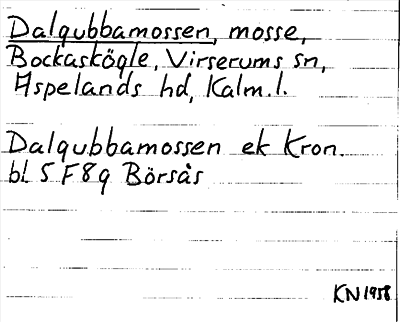 Dalgubbamossen, mosse,
Bockaskögle, Virserums sn,
Aspelands hd, Kalm.l.
Dalgubbamossen ek Kron.
bl 5 F 8 g Börsås
KN 1958